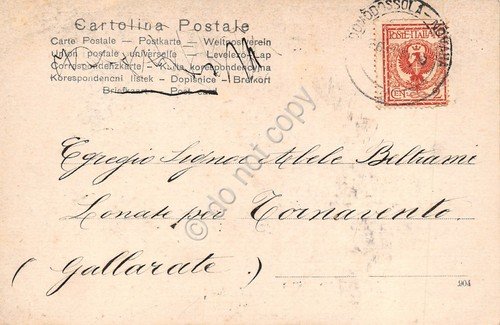 Cartolina Postale
Carte Postale – Postkarte – Weltpostverein
Union postale universelle – Levelező-Lap
Correspondenzkarte – Karta korespondencyjna
Korespondenční lístek – Dopisnice – Brefkort
Briefkaart – Post card
DOMODOSSOLA - NOVARA
POSTE ITALIANE
CENT. 2
Egregio Signor Abele Beltrami
Lonate per Tornavento
(Gallarate.)
904
©do not copy